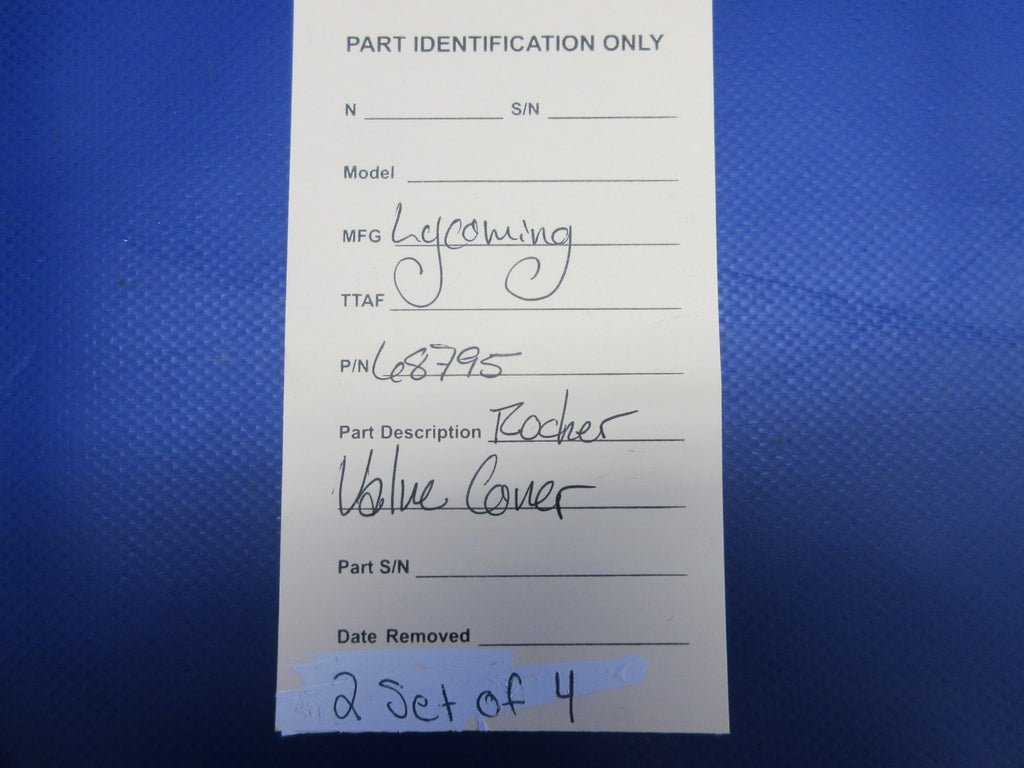 PART IDENTIFICATION ONLY
N S/N
Model
MFG Lycoming
TTAF
P/N 68795
Part Description Rocker
Valve Cover
Part S/N
Date Removed
2 Set of 4